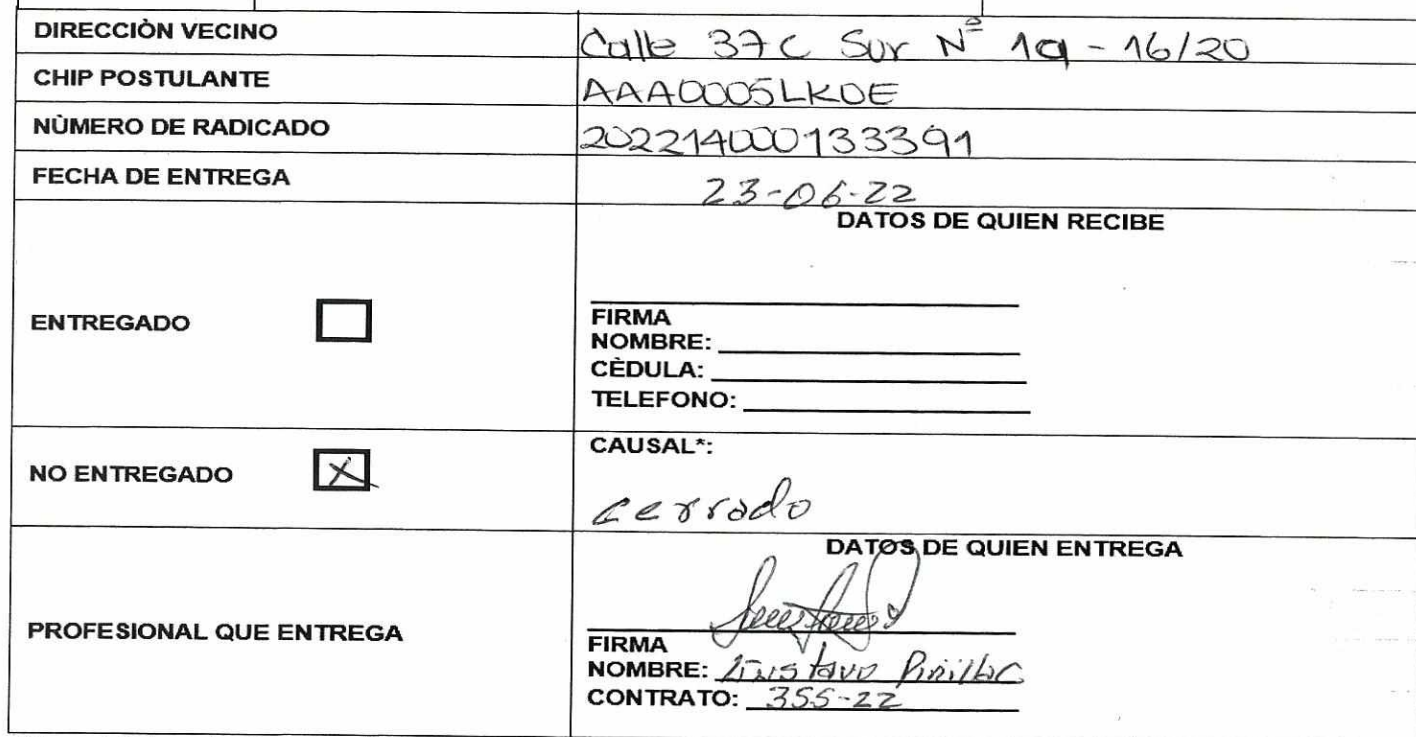 DIRECCIÒN VECINO
Calle 37 C Sur Nº 1a - 16/20
CHIP POSTULANTE
AAA0005LKOE
NÙMERO DE RADICADO
20221400133391
FECHA DE ENTREGA
23-06-22
DATOS DE QUIEN RECIBE
ENTREGADO
FIRMA
NOMBRE:
CÈDULA:
TELEFONO:
NO ENTREGADO X
CAUSAL*:
cerrado
DATOS DE QUIEN ENTREGA
PROFESIONAL QUE ENTREGA
FIRMA
NOMBRE: Gustavo Pinilla C
CONTRATO: 355-22